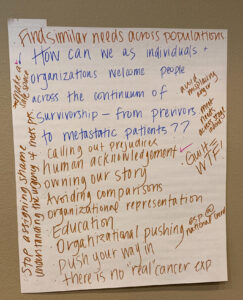 Find similar needs across populations
How can we as individuals +
organizations welcome people
across the continuum of
survivorship - from previvors
to metastatic patients??
Calling out prejudices
human acknowledgement
owning our story
Avoiding comparisons
organizational representation
Education
Orgnizational pushing
push your way in
there is no "real" cancer exp.
avoid
Guilt
WTF
esp @
national level
Stop assigning shame
Understanding the urgency of mets